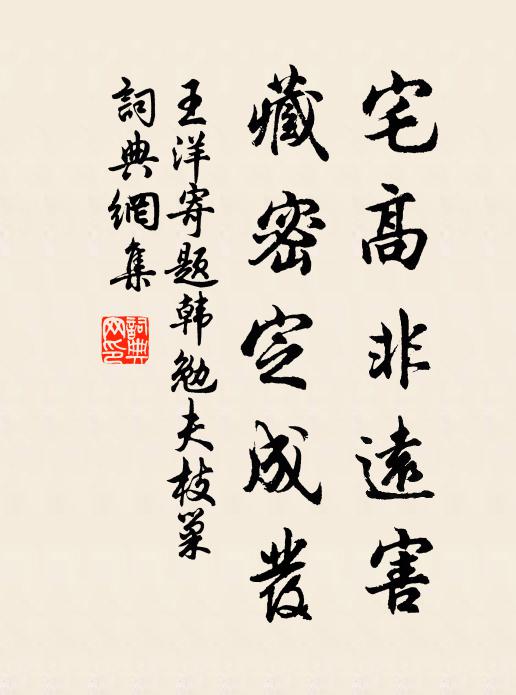 宅高非遠害
藏密定成叢
王洋寄題韩勉夫枝巢
詞典網集
詞典网印